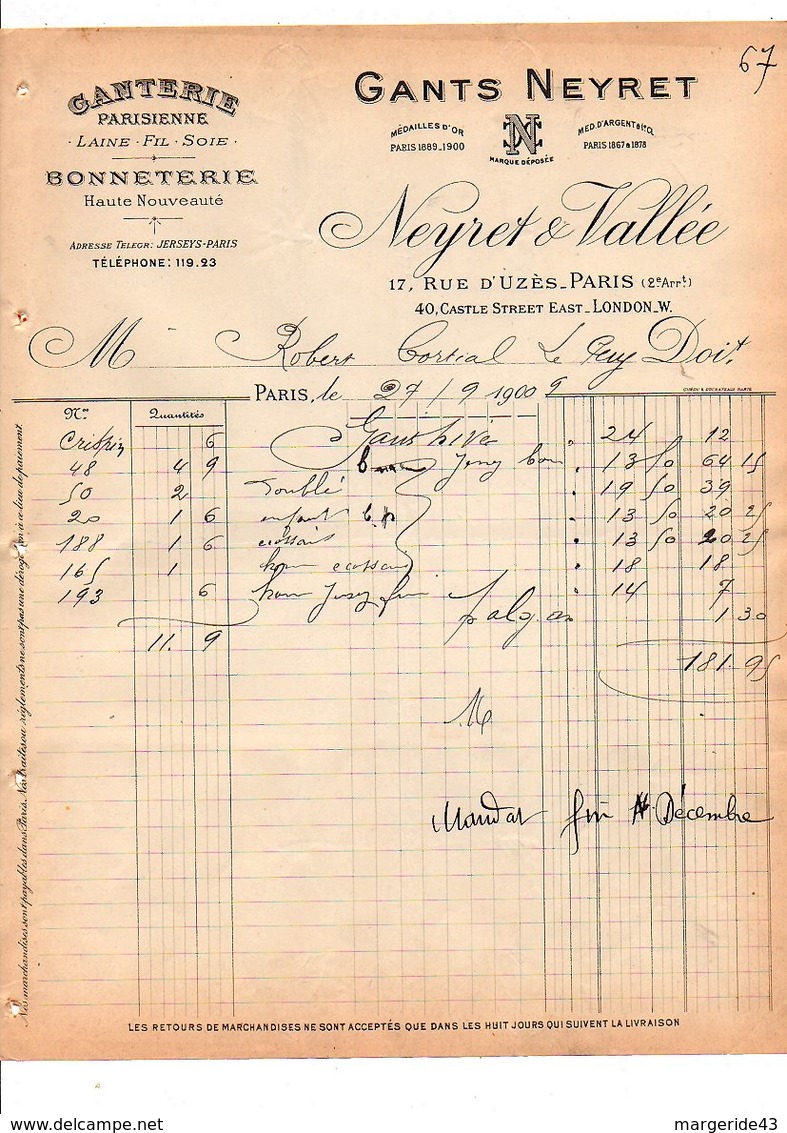 67
GANTERIE
PARISIENNE
· LAINE · FIL · SOIE ·
BONNETERIE
Haute Nouveauté
ADRESSE TELEGR: JERSEYS-PARIS
TÉLÉPHONE: 119.23
GANTS NEYRET
MÉDAILLES D'OR
PARIS 1889-1900
N C
MARQUE DÉPOSÉE
MED. D'ARGENT & 1re CL.
PARIS 1867 & 1878
Neyret & Vallée
17, RUE D'UZÈS_PARIS (2e Arrt)
40, CASTLE STREET EAST_LONDON_W.
M Robert Cortial Le Puy Doit
PARIS, le 27/9 1900 9
Nos Quantités
Crispin 6 Gants hiver 24 12
48 4 9 Jersey 13 50 64 15
50 2 doublé 19 50 39
20 1 6 enfant 13 50 20 25
188 1 6 ecossais 13 50 20 25
165 1 hom ecossais 18 18
193 6 hom Jersey 14 7
1 30
11. 9
181.95
M
Mandat fin Décembre
Nos marchandises sont payables dans Paris. Nos traites ou règlements ne sont pas une dérogation à ce lieu de paiement
LES RETOURS DE MARCHANDISES NE SONT ACCEPTÉS QUE DANS LES HUIT JOURS QUI SUIVENT LA LIVRAISON
margeride43